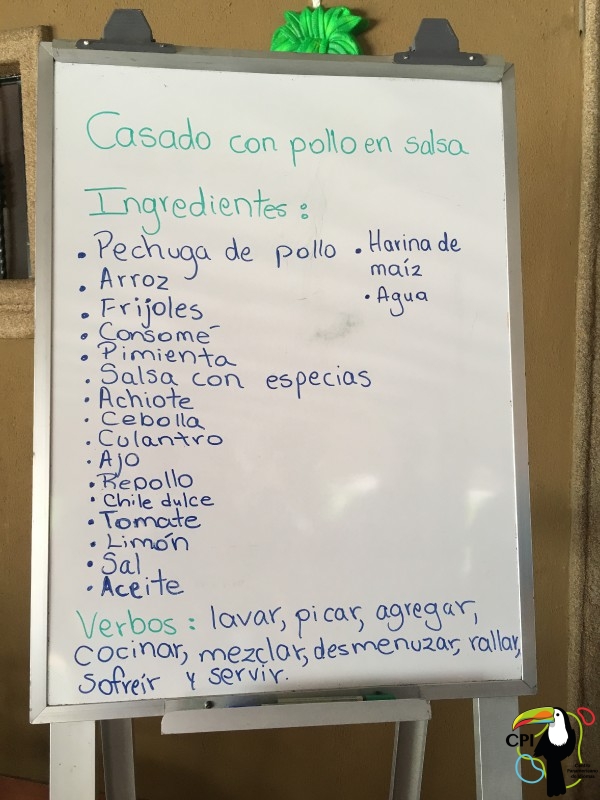 Casado con pollo en salsa
Ingredientes:
• Pechuga de pollo
• Arroz
• Frijoles
• Consomé
• Pimienta
• Salsa con especias
• Achiote
• Cebolla
• Culantro
• Ajo
• Repollo
• Chile dulce
• Tomate
• Limón
• Sal
• Aceite
• Harina de
maíz
• Agua
Verbos: lavar, picar, agregar,
cocinar, mezclar, desmenuzar, rallar,
sofreír y servir.
CPI